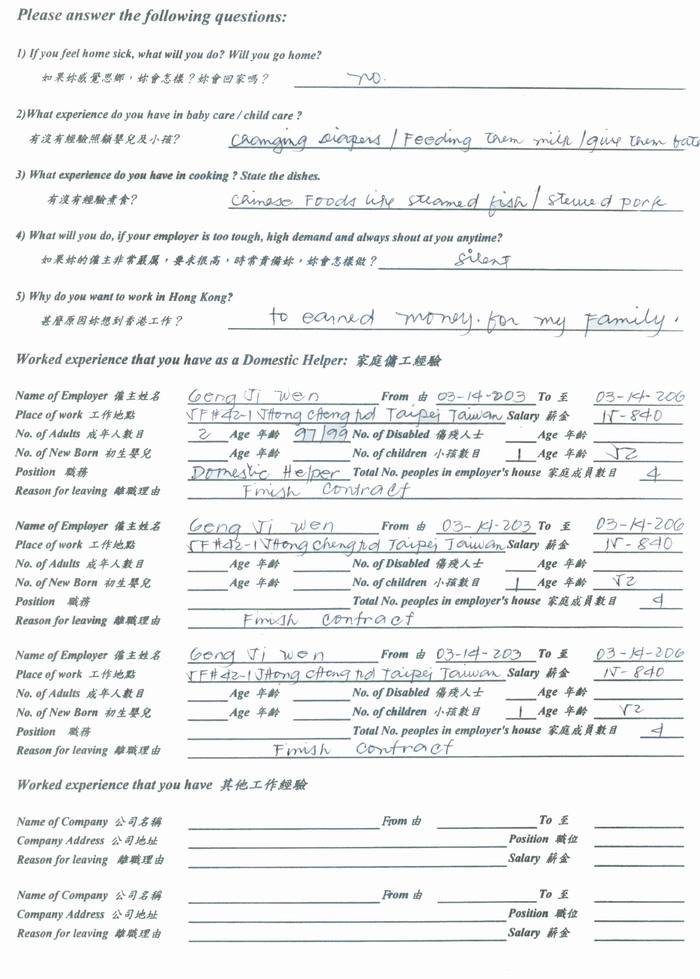 Please answer the following questions:
1) If you feel home sick, what will you do? Will you go home?
如果妳感覺思鄉，妳會怎樣？妳會回家嗎？ no.
2)What experience do you have in baby care / child care ?
有沒有經驗照顧嬰兒及小孩? Changing diapers / Feeding them milk / give them
3) What experience do you have in cooking ? State the dishes.
有沒有經驗煮食? Chinese Foods like steamed fish / stewed pork
4) What will you do, if your employer is too tough, high demand and always shout at you anytime?
如果妳的僱主非常嚴厲，要求很高，時常責備妳，妳會怎樣做？ silent
5) Why do you want to work in Hong Kong?
甚麼原因妳想到香港工作？ to earned money. for my Family.
Worked experience that you have as a Domestic Helper: 家庭傭工經驗
Name of Employer 僱主姓名 Geng Ji wen From 由 03-14-203 To 至 03-14-206
Place of work 工作地點 Taipei Taiwan Salary 薪金 840
No. of Adults 成年人數目 2 Age 年齡 97/99 No. of Disabled 傷殘人士 Age 年齡
No. of New Born 初生嬰兒 Age 年齡 No. of children 小孩數目 1 Age 年齡
Position 職務 Domestic Helper Total No. peoples in employer's house 家庭成員數目 4
Reason for leaving 離職理由 Finish contract
Name of Employer 僱主姓名 Geng Ji wen From 由 03-14-203 To 至 03-14-206
Place of work 工作地點 Taipei Taiwan Salary 薪金 840
No. of Adults 成年人數目 Age 年齡 No. of Disabled 傷殘人士 Age 年齡
No. of New Born 初生嬰兒 Age 年齡 No. of children 小孩數目 1 Age 年齡
Position 職務 Total No. peoples in employer's house 家庭成員數目 4
Reason for leaving 離職理由 Finish contract
Name of Employer 僱主姓名 Geng Ji wen From 由 03-14-203 To 至 03-14-206
Place of work 工作地點 Taipei Taiwan Salary 薪金 840
No. of Adults 成年人數目 Age 年齡 No. of Disabled 傷殘人士 Age 年齡
No. of New Born 初生嬰兒 Age 年齡 No. of children 小孩數目 1 Age 年齡
Position 職務 Total No. peoples in employer's house 家庭成員數目 4
Reason for leaving 離職理由 Finish contract
Worked experience that you have 其他工作經驗
Name of Company 公司名稱 From 由 To 至
Company Address 公司地址 Position 職位
Reason for leaving 離職理由 Salary 薪金
Name of Company 公司名稱 From 由 To 至
Company Address 公司地址 Position 職位
Reason for leaving 離職理由 Salary 薪金